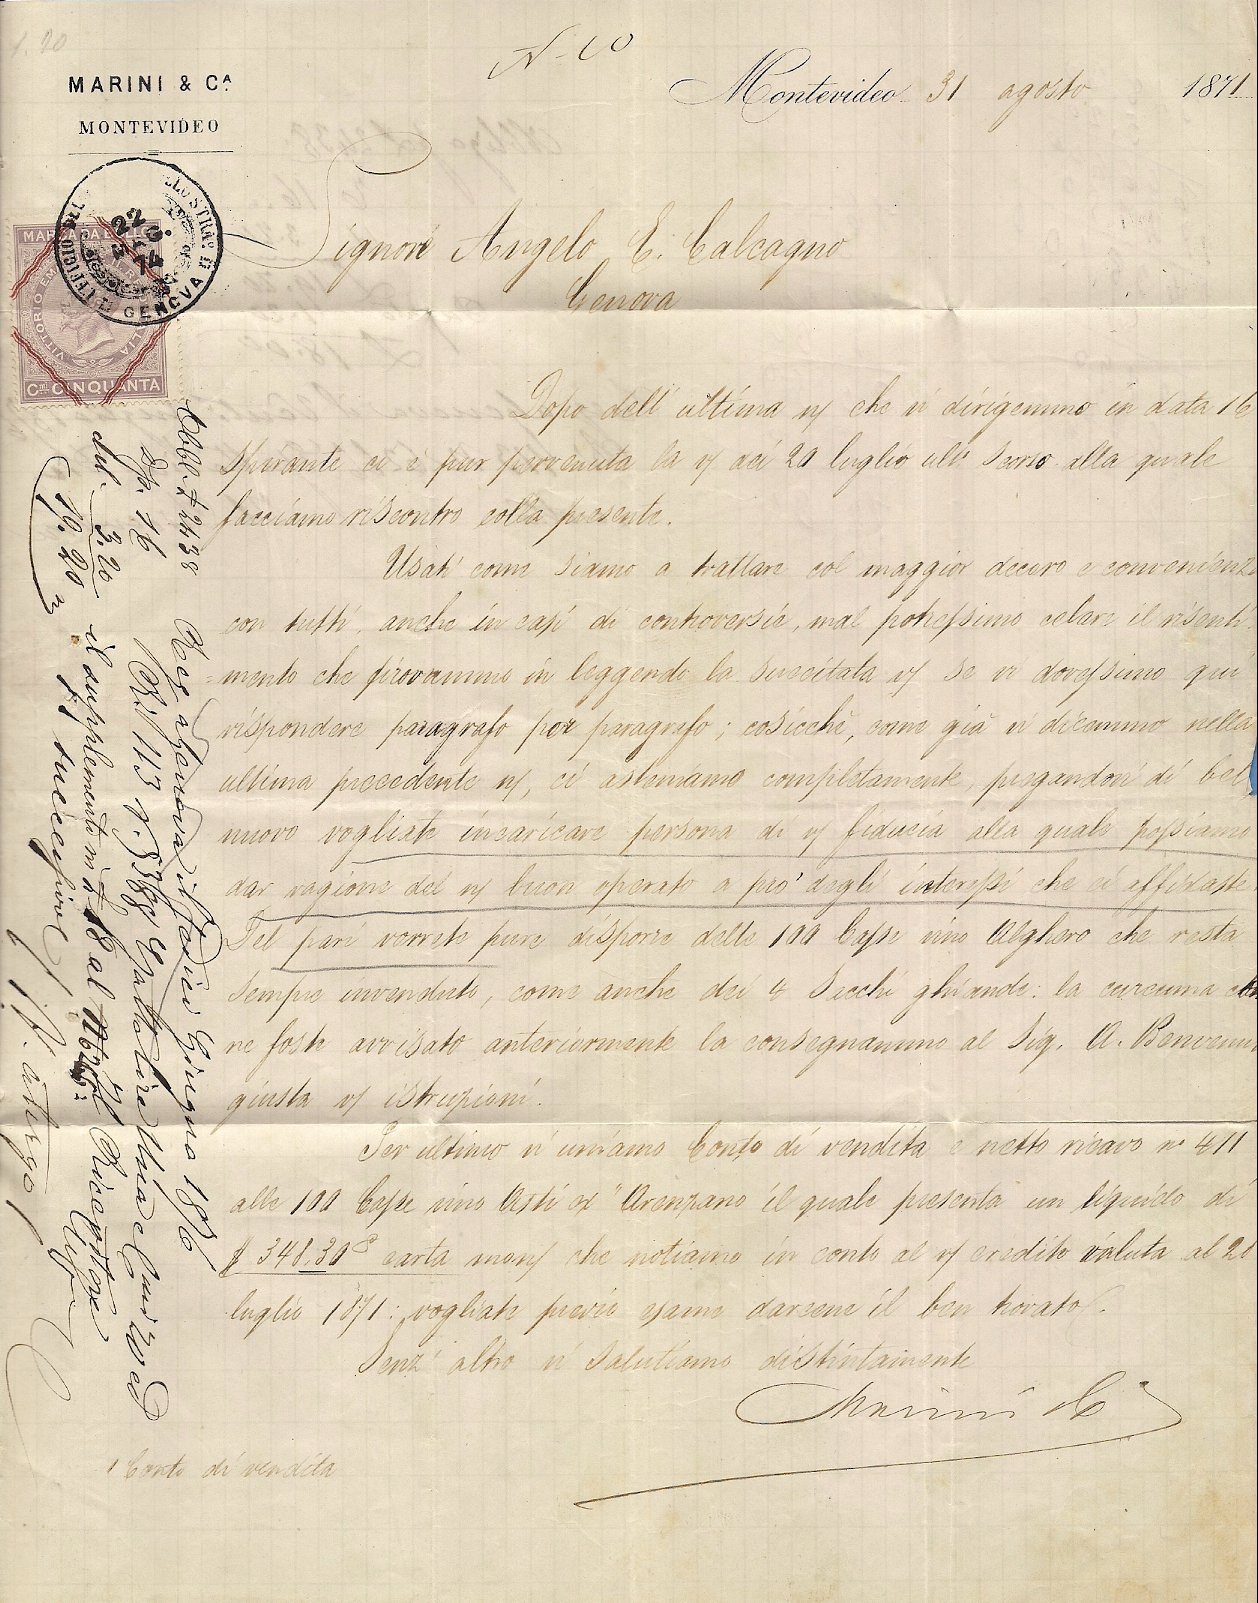 N. 10
MARINI & Cᴬ.
MONTEVIDEO
Montevideo 31 agosto 1871
Signor Angelo E. Calcagno
Genova
MARCA DA BOLLO
VITTORIO EM
CINQUANTA
GENOVA
Dopo dell' ultima ns/ che vi dirigemmo in data 16
spirante ci è pur pervenuta la vs/ dei 20 luglio ulto scorso alla quale
facciamo riscontro colla presente.
Usati come siamo a trattare col maggior decoro e convenienza
con tutti, anche in casi di controversie, mal potressimo celare il risenti
=mento che provammo in leggendo la succitata vs/ se vi dovessimo qui
rispondere paragrafo per paragrafo; cosicchè, come già vi dicemmo nella
ultima precedente ns/, ci asteniamo completamente, pregandovi di bel
nuovo vogliate incaricare persona di vs/ fiducia alla quale possiamo
dar ragione del ns/ buon operato a pro' degli interessi che ci affidaste
Del pari vorrete pure disporre delle 100 Casse vino Alghero che resta
sempre invenduto, come anche dei 4 Sacchi ghiande: la curcuma che
ne foste avvisato anteriormente la consegnammo al Sig. A. Benvenuto
giusta vs/ istruzioni.
Per ultimo vi uniamo Conto di vendita e netto ricavo n° 411
alle 100 Casse vino Asti ex "Arenzano il quale presenta un liquido di
$ 348.30 c carta mons/ che notiamo in conto al vs/ credito valuta al 20
luglio 1871: vogliate previo esame darsene il ben trovato.
Senz' altro vi salutiamo distintamente
Marini & C
1 Conto di vendita
2438
16
3.20
19.20
Reg. a Genova il Giugno 1876
Lire Una e Cent. 20 ed
il supplemento in 18 al
Il Ricevitore